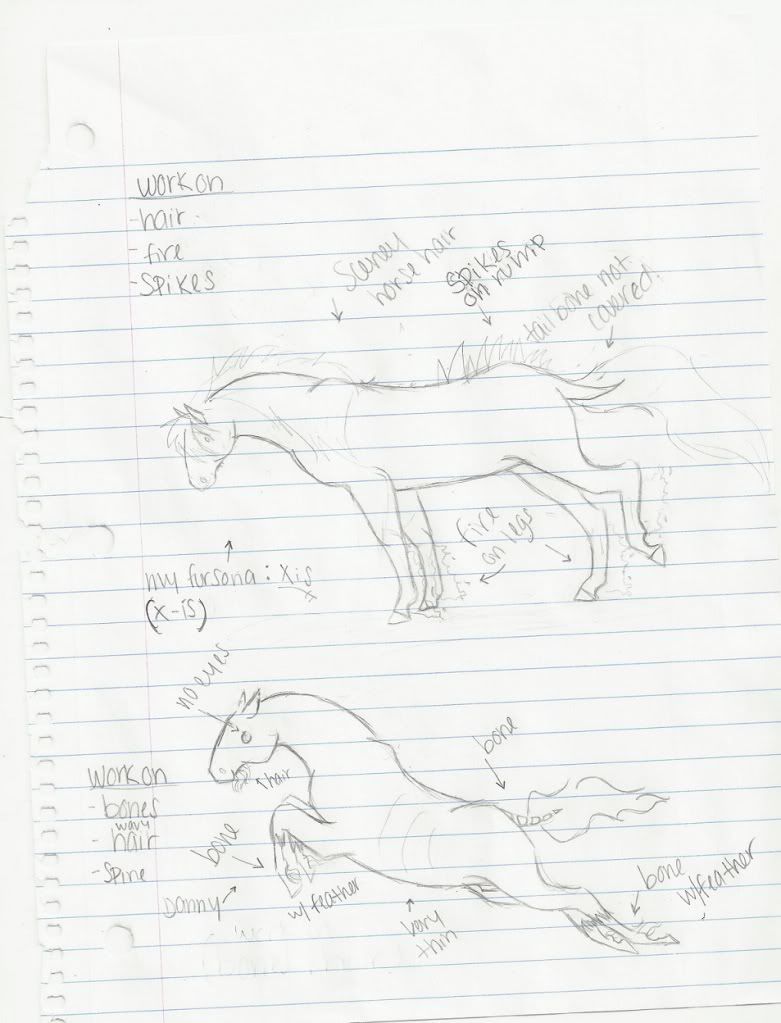 work on
- hair
- fire
- SPikes
horse hair
Spikes
on rump
tail bone not
covered!
Fire
on legs
my fursona: Xis
(X-is)
no eyes
bone
work on
- bones
wavy
- hair
- Spine
hair
bone
Danny
w/ feather
very
thin
bone
w/feather